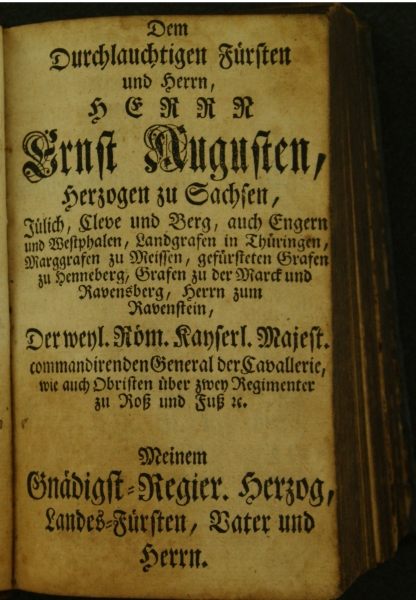 Dem
Durchlauchtigen Fürsten
und Herrn,
HERRN
Ernst Augusten,
Herzogen zu Sachsen,
Jülich, Cleve und Berg, auch Engern
und Westphalen, Landgrafen in Thüringen,
Marggrafen zu Meissen, gefürsteten Grafen
zu Henneberg, Grafen zu der Marck und
Ravensberg, Herrn zum
Ravenstein,
Der weyl. Röm. Kayserl. Majest.
commandirenden General der Cavallerie,
wie auch Obristen über zwey Regimenter
zu Roß und Fuß ꝛc.
Meinem
Gnädigst-Regier. Herzog,
Landes-Fürsten, Vater und
Herrn.